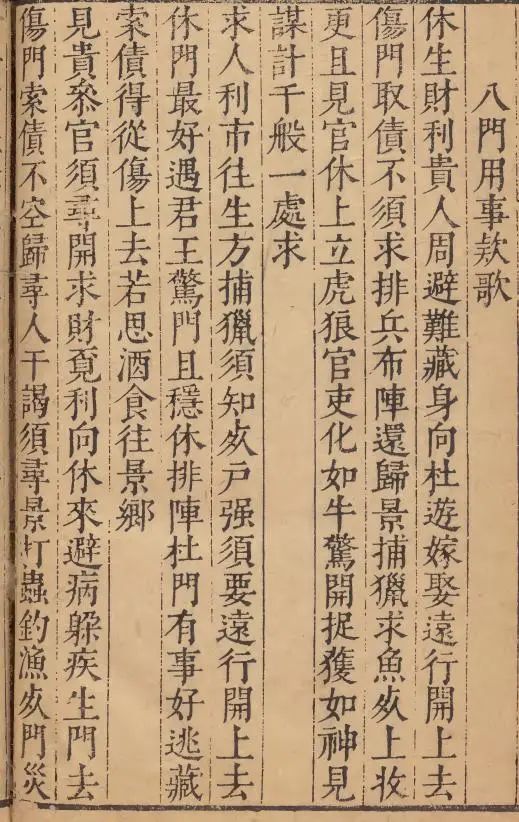 八門用事欵歌
休生財利貴人周避難藏身向杜遊嫁娶遠行開上去
傷門取債不須求排兵布陣還歸景捕獵求魚㱙上收
更且見官休上立虎狼官吏化如牛驚開捉獲如神見
謀計千般一處求
求人利市往生方捕獵須知㱙戸强須要遠行開上去
休門最好遇君王驚門且穩休排陣杜門有事好逃藏
索債得從傷上去若思酒食往景鄉
見貴叅官須尋開求財覔利向休來避病躱疾生門去
傷門索債不空歸尋人干謁須尋景打蟲釣漁㱙門災